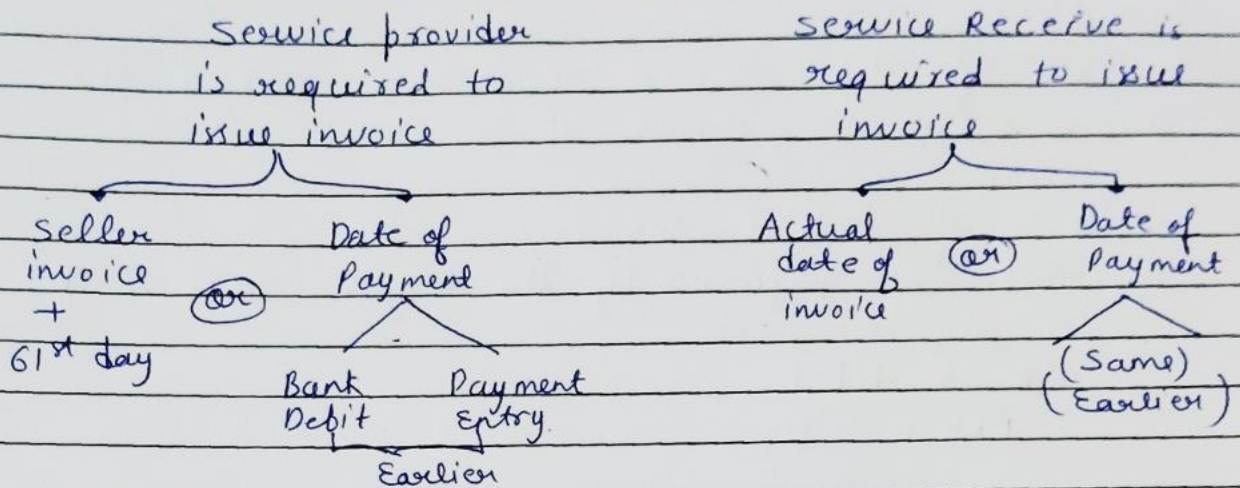 Service provider
is required to
issue invoice
Seller
invoice
+
61st day
or
Date of
Payment
Bank
Debit
Payment
Entry
Earlier
Service Receive is
required to issue
invoice
Actual
date of
invoice
or
Date of
Payment
(Same)
(Earlier)